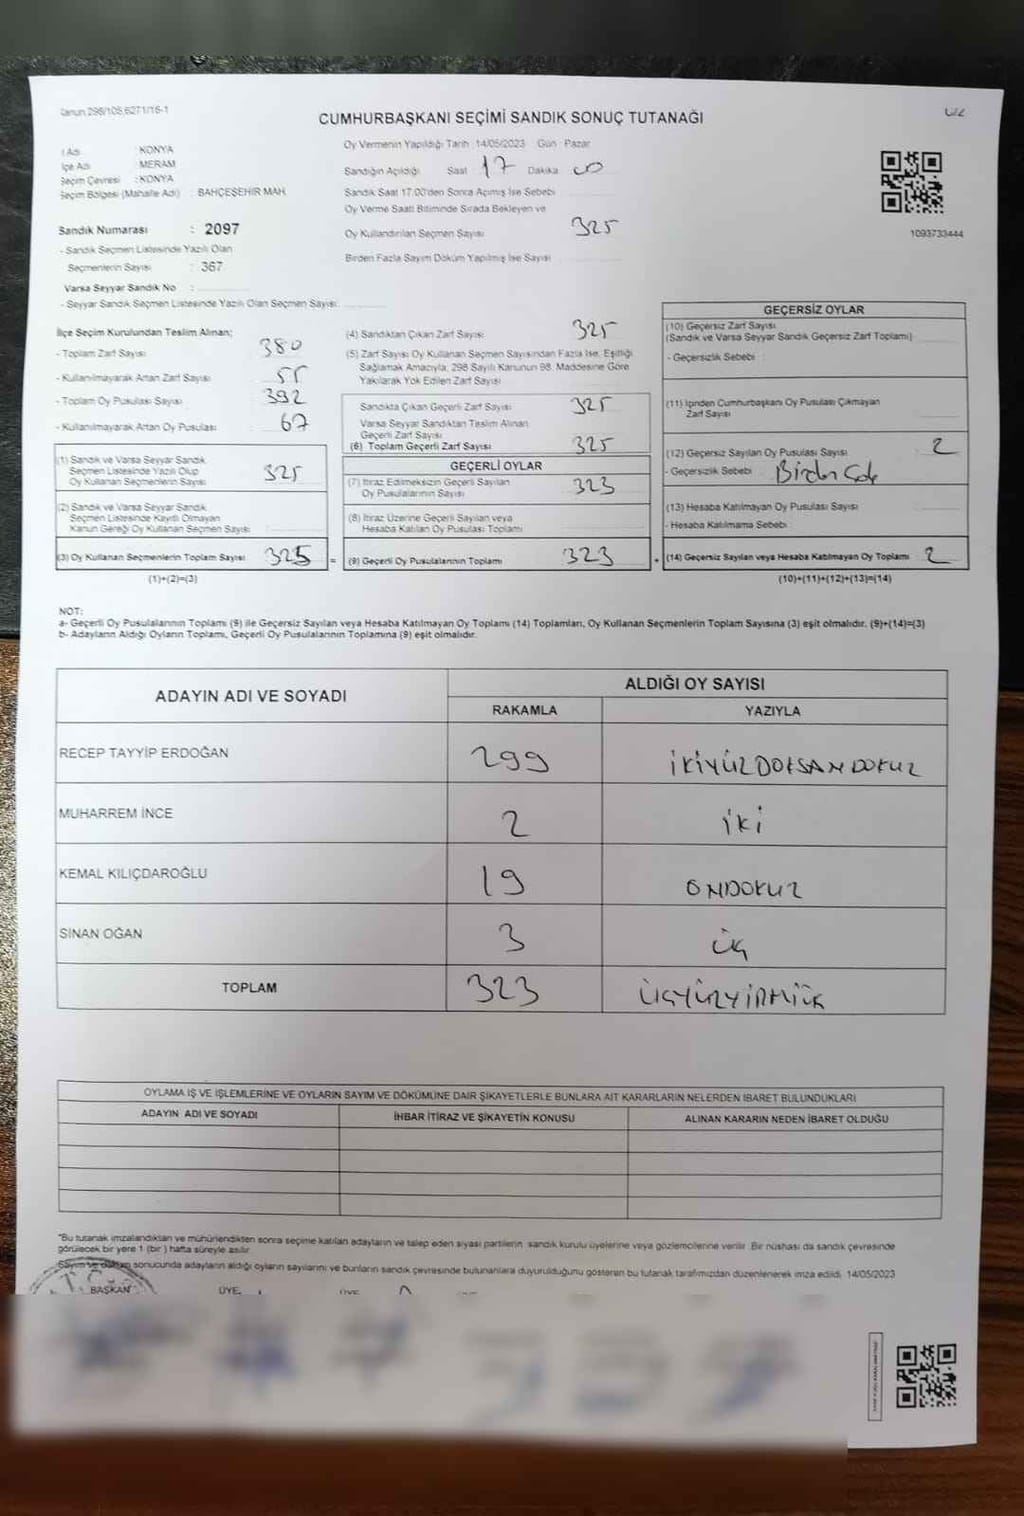 Kanun 298/105,6271/16-1
CUMHURBAŞKANI SEÇİMİ SANDIK SONUÇ TUTANAĞI
İl Adı : KONYA
İlçe Adı : MERAM
Seçim Çevresi : KONYA
Seçim Bölgesi (Mahalle Adı) : BAHÇEŞEHİR MAH.
Sandık Numarası : 2097
- Sandık Seçmen Listesinde Yazılı Olan
Seçmenlerin Sayısı : 367
Varsa Seyyar Sandık No :
- Seyyar Sandık Seçmen Listesinde Yazılı Olan Seçmen Sayısı:
Oy Vermenin Yapıldığı Tarih : 14/05/2023 Gün : Pazar
Sandığın Açıldığı Saat 17 Dakika 00
Sandık Saat 17:00'den Sonra Açımış İse Sebebi
Oy Verme Saati Bitiminde Sırada Bekleyen ve
Oy Kullandırılan Seçmen Sayısı 325
Birden Fazla Sayım Döküm Yapılmış İse Sayısı
1093733444
İlçe Seçim Kurulundan Teslim Alınan;
- Toplam Zarf Sayısı : 380
- Kullanılmayarak Artan Zarf Sayısı : 55
- Toplam Oy Pusulası Sayısı : 392
- Kullanılmayarak Artan Oy Pusulası : 67
(1) Sandık ve Varsa Seyyar Sandık
Seçmen Listesinde Yazılı Olup
Oy Kullanan Seçmenlerin Sayısı 325
(2) Sandık ve Varsa Seyyar Sandık
Seçmen Listesinde Kayıtlı Olmayan
Kanun Gereği Oy Kullanan Seçmen Sayısı
(3) Oy Kullanan Seçmenlerin Toplam Sayısı 325 =
(1)+(2)=(3)
(4) Sandıktan Çıkan Zarf Sayısı 325
(5) Zarf Sayısı Oy Kullanan Seçmen Sayısından Fazla İse, Eşitliği
Sağlamak Amacıyla, 298 Sayılı Kanunun 98. Maddesine Göre
Yakılarak Yok Edilen Zarf Sayısı
Sandıkta Çıkan Geçerli Zarf Sayısı 325
Varsa Seyyar Sandıktan Teslim Alınan
Geçerli Zarf Sayısı
(6) Toplam Geçerli Zarf Sayısı 325
GEÇERLİ OYLAR
(7) İtiraz Edilmeksizin Geçerli Sayılan
Oy Pusulalarının Sayısı 323
(8) İtiraz Üzerine Geçerli Sayılan veya
Hesaba Katılan Oy Pusulası Toplamı
(9) Geçerli Oy Pusulalarının Toplamı 323 +
GEÇERSİZ OYLAR
(10) Geçersiz Zarf Sayısı
(Sandık ve Varsa Seyyar Sandık Geçersiz Zarf Toplamı)
- Geçersizlik Sebebi :
(11) İçinden Cumhurbaşkanı Oy Pusulası Çıkmayan
Zarf Sayısı
(12) Geçersiz Sayılan Oy Pusulası Sayısı 2
- Geçersizlik Sebebi :
(13) Hesaba Katılmayan Oy Pusulası Sayısı
- Hesaba Katılmama Sebebi :
(14) Geçersiz Sayılan veya Hesaba Katılmayan Oy Toplamı 2
(10)+(11)+(12)+(13)=(14)
NOT:
a- Geçerli Oy Pusulalarının Toplamı (9) ile Geçersiz Sayılan veya Hesaba Katılmayan Oy Toplamı (14) Toplamları, Oy Kullanan Seçmenlerin Toplam Sayısına (3) eşit olmalıdır. (9)+(14)=(3)
b- Adayların Aldığı Oyların Toplamı, Geçerli Oy Pusulalarının Toplamına (9) eşit olmalıdır.
ADAYIN ADI VE SOYADI ALDIĞI OY SAYISI
RAKAMLA YAZIYLA
RECEP TAYYİP ERDOĞAN 299 İKİYÜZDOKSANDOKUZ
MUHARREM İNCE 2 İKİ
KEMAL KILIÇDAROĞLU 19 ONDOKUZ
SİNAN OĞAN 3 ÜÇ
TOPLAM 323 ÜÇYÜZYİRMİÜÇ
OYLAMA İŞ VE İŞLEMLERİNE VE OYLARIN SAYIM VE DÖKÜMÜNE DAİR ŞİKAYETLERLE BUNLARA AİT KARARLARIN NELERDEN İBARET BULUNDUKLARI
ADAYIN ADI VE SOYADI İHBAR İTİRAZ VE ŞİKAYETİN KONUSU ALINAN KARARIN NEDEN İBARET OLDUĞU
*Bu tutanak imzalandıktan ve mühürlendikten sonra seçime katılan adayların ve talep eden siyasi partilerin sandık kurulu üyelerine veya gözlemcilerine verilir. Bir nüshası da sandık çevresinde
görülecek bir yere 1 (bir ) hafta süreyle asılır.
Sayım ve döküm sonucunda adayların aldığı oyların sayılarını ve bunların sandık çevresinde bulunanlara duyurulduğunu gösteren bu tutanak tarafımızdan düzenlenerek imza edildi. 14/05/2023
BAŞKAN ÜYE ÜYE